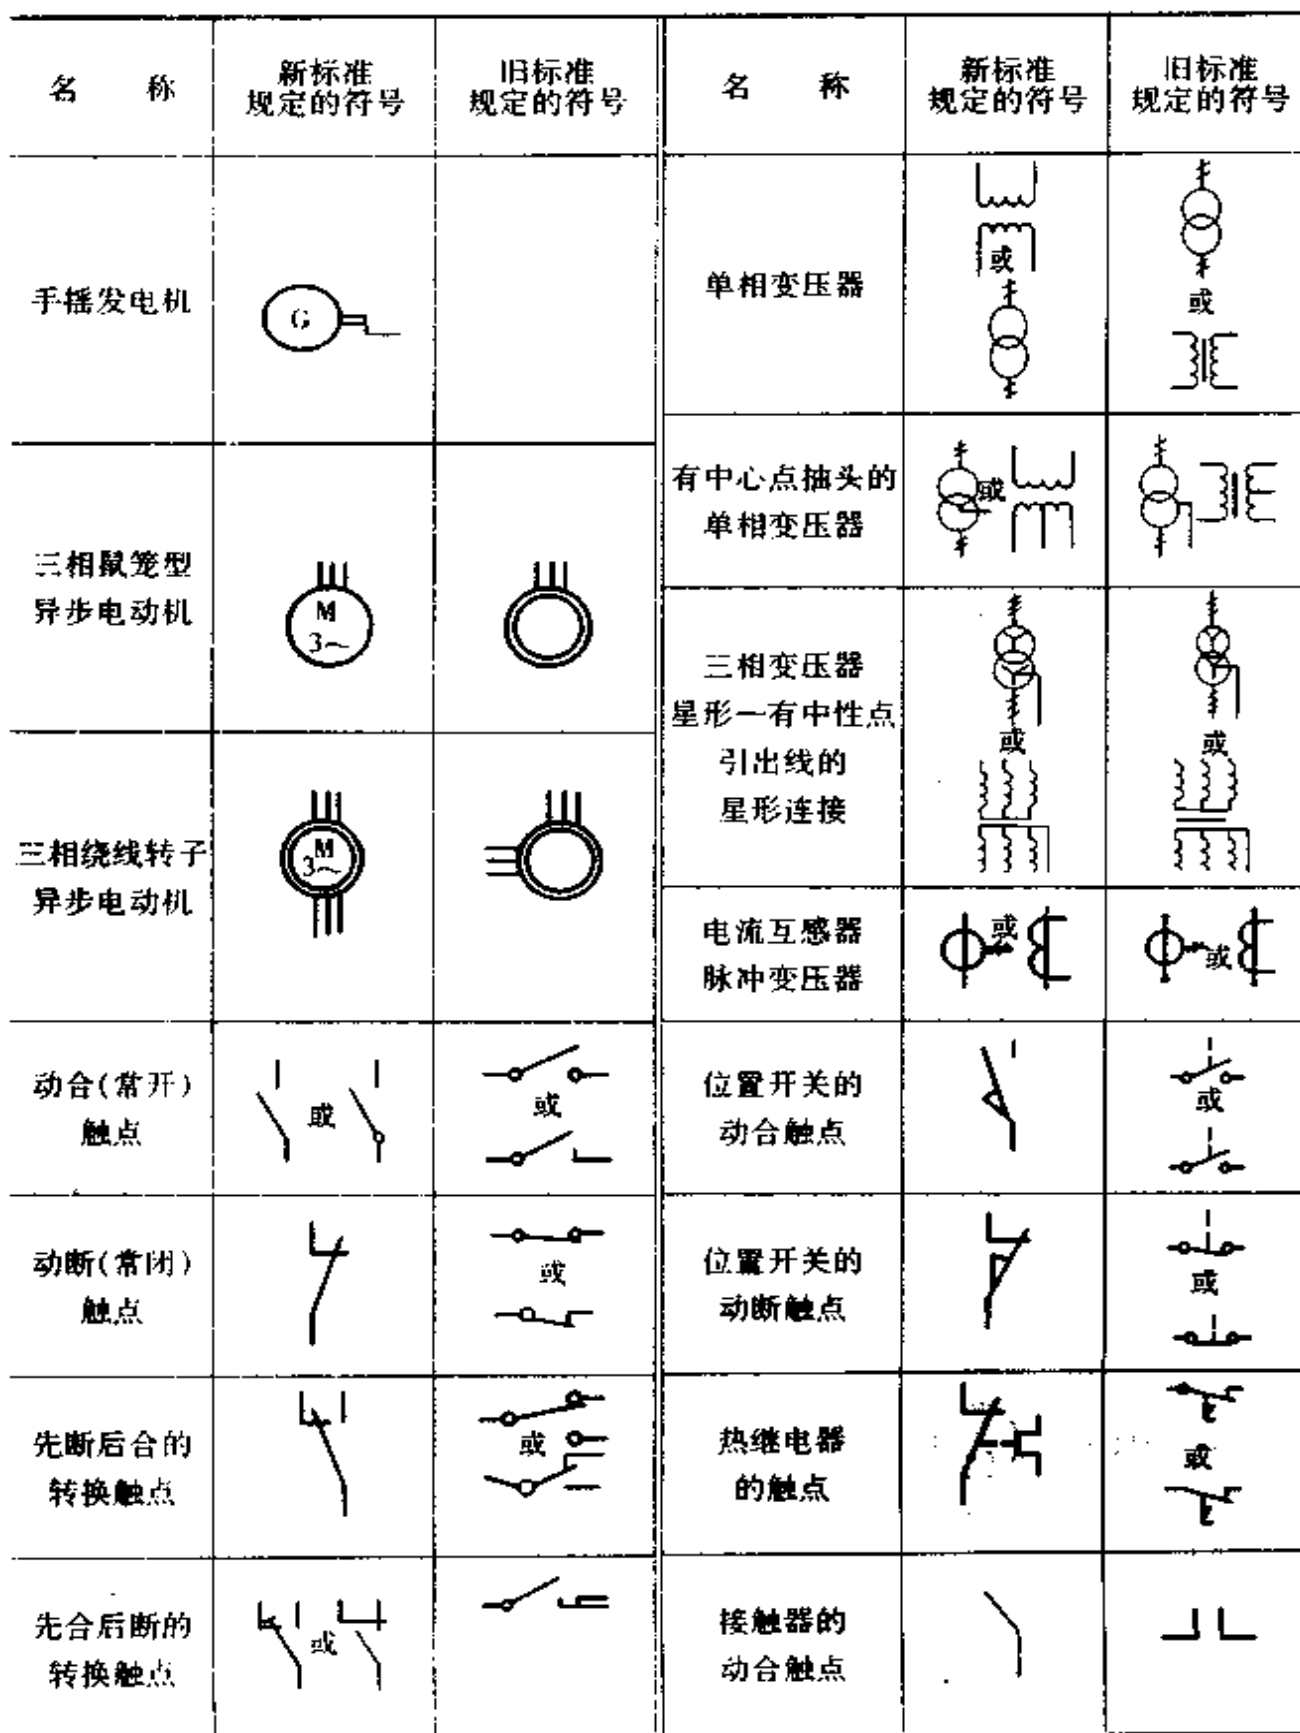 名 称
新标准
规定的符号
旧标准
规定的符号
名 称
新标准
规定的符号
旧标准
规定的符号
手摇发电机
G
三相鼠笼型
异步电动机
M
3～
三相绕线转子
异步电动机
M
3～
动合(常开)
触点
或
或
动断(常闭)
触点
或
先断后合的
转换触点
或
先合后断的
转换触点
或
单相变压器
或
或
有中心点抽头的
单相变压器
或
三相变压器
星形一有中性点
引出线的
星形连接
或
或
电流互感器
脉冲变压器
或
或
位置开关的
动合触点
或
位置开关的
动断触点
或
热继电器
的触点
或
接触器的
动合触点